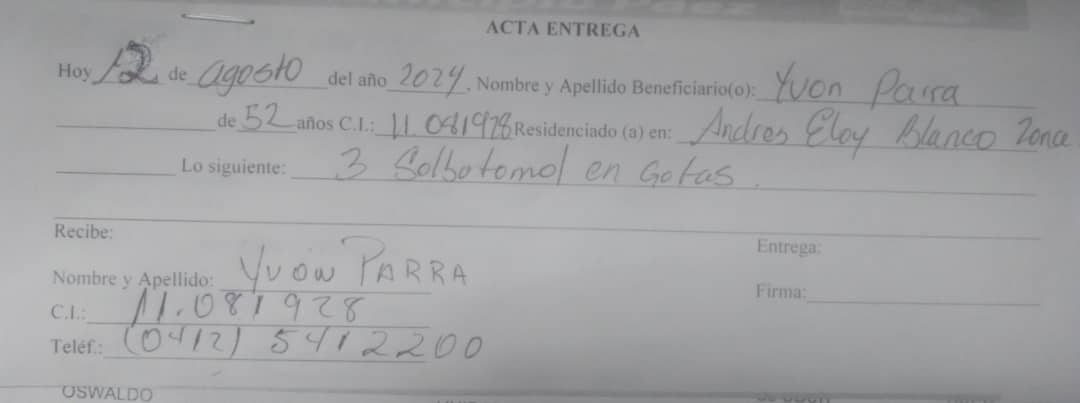 ACTA ENTREGA
Hoy 12 de agosto del año 2024, Nombre y Apellido Beneficiario(o): Yvon Parra
de 52 años C.I.: 11.081928 Residenciado (a) en: Andres Eloy Blanco Zona
Lo siguiente: 3 Solbotomol en Gotas.
Recibe:
Entrega:
Nombre y Apellido: YVON PARRA
Firma:
C.I.: 11.081928
Teléf.: (0412) 5412200
OSWALDO